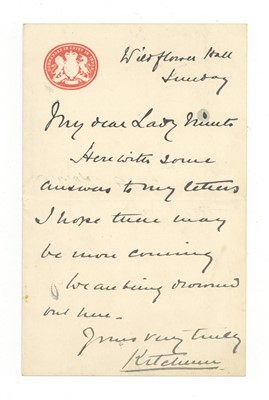 Wildflower Hall
Sunday
My dear Lady Minto
Herewith some
answers to my letters
I hope there may
be more coming
We are being drowned
out here.
Yours very truly
Kitchener